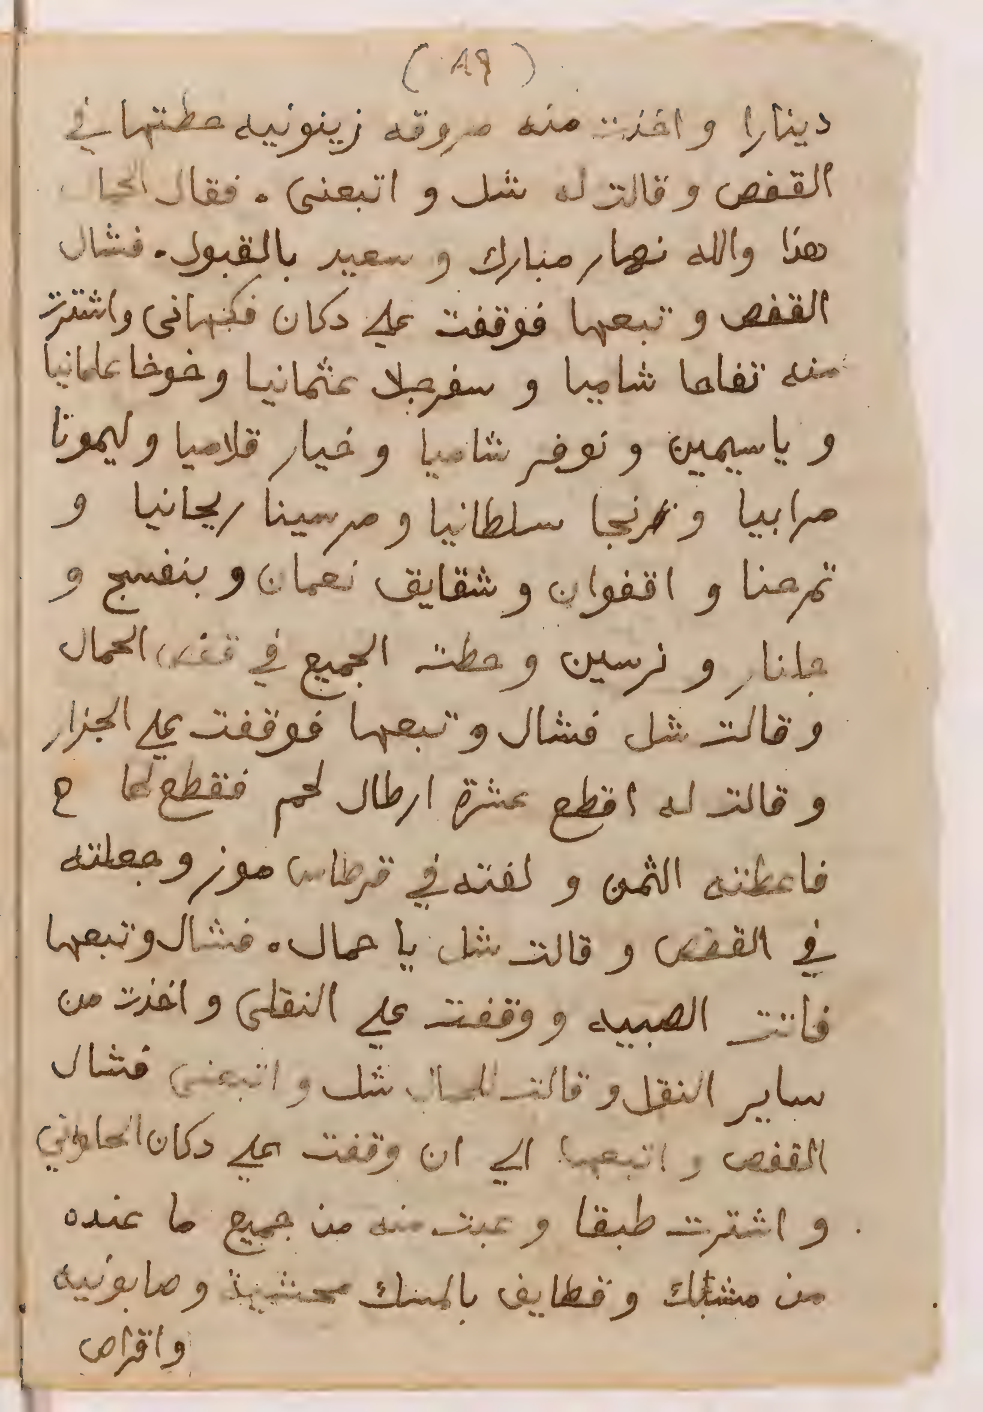 ( ٨٩ )
دينارا و اخذت منه مروقه زيتونيه حطتها في
القفص و قالت له شل و اتبعنى . فقال الحمال
هذا والله نهار مبارك و سعيد بالقبول . فشال
القفص و تبعها فوقفت على دكان فكهانى واشترت
منه تفاحا شاميا و سفرجلا عثمانيا و خوخا علمانيا
و ياسيمين و نوفر شاميا و خيار قلاميا و ليمونا
مرابيا و ترنجا سلطانيا و مرسينا ريحانيا و
تمرحنا و اقفوان و شقايق نعمان و بنفسج و
جلنار و نرسين و حطته الجميع في قفص الحمال
و قالت شل فشال و تبعها فوقفت على الجزار
و قالت له اقطع عشرة ارطال لحم فقطع لها
فاعطته الثمن و لفته في قرطاس موز و جعلته
في القفص و قالت شل يا حمال . فشال و تبعها
فاتت الصبيه و وقفت على النقلى و اخذت من
ساير النقل و قالت للحمال شل و اتبعنى فشال
القفص و اتبعها الي ان وقفت على دكان الحلواني
و اشترت طبقا و عبت منه من جميع ما عنده
من مشبك و قطايف بالمسك محشية و صابونيه
و اقراص